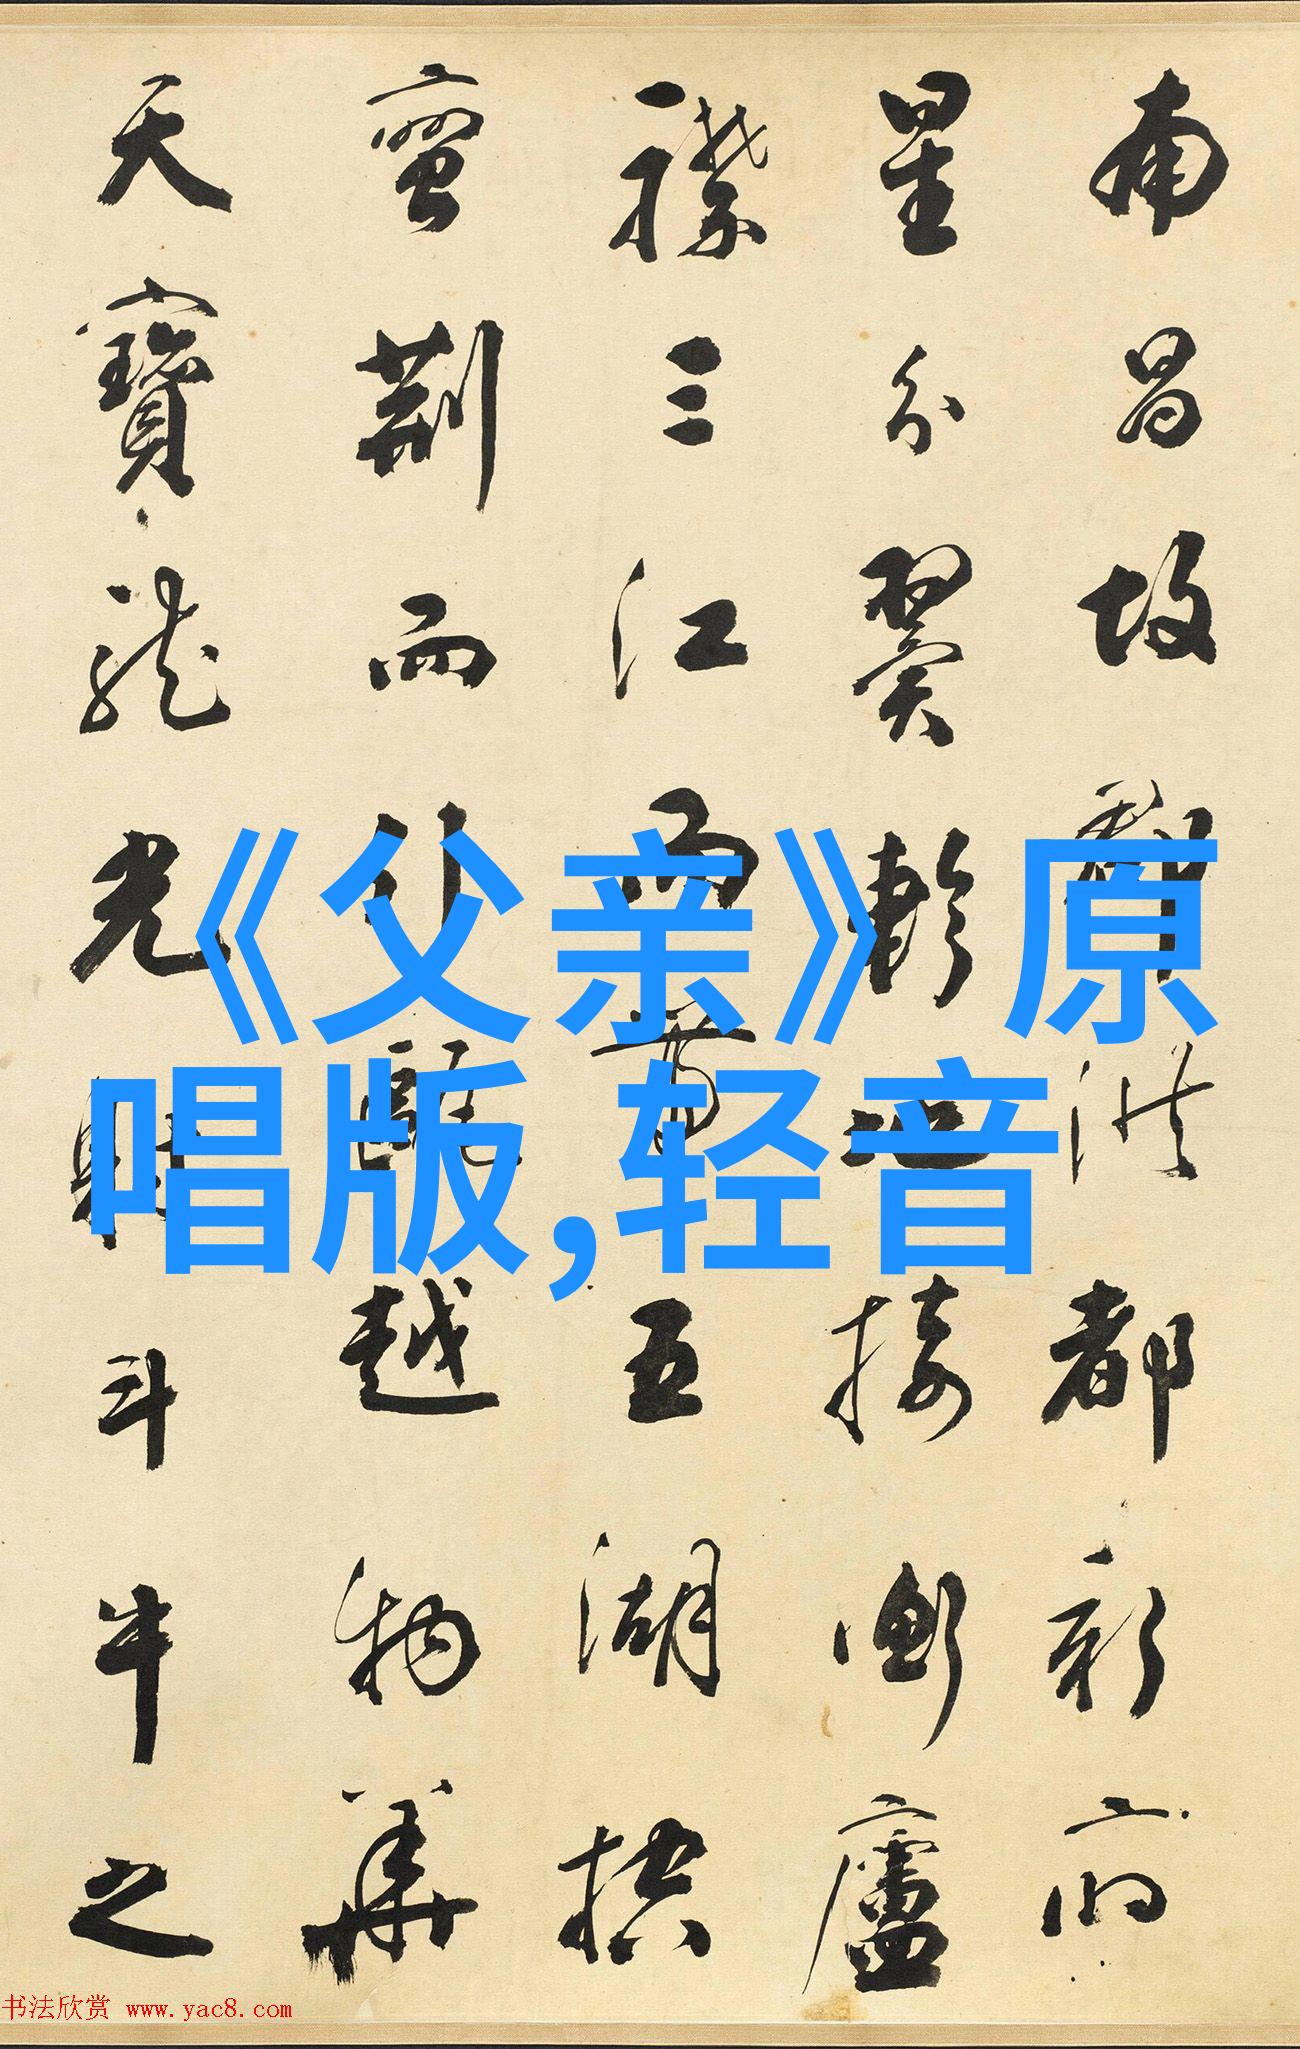 南昌故郡洪都新府
星分翼軫地接衡廬
襟三江而帶五湖控
蠻荆而引甌越物華
天寶龍光射斗牛之
《父亲》原
唱版,轻音
书法欣赏 www.yac8.com